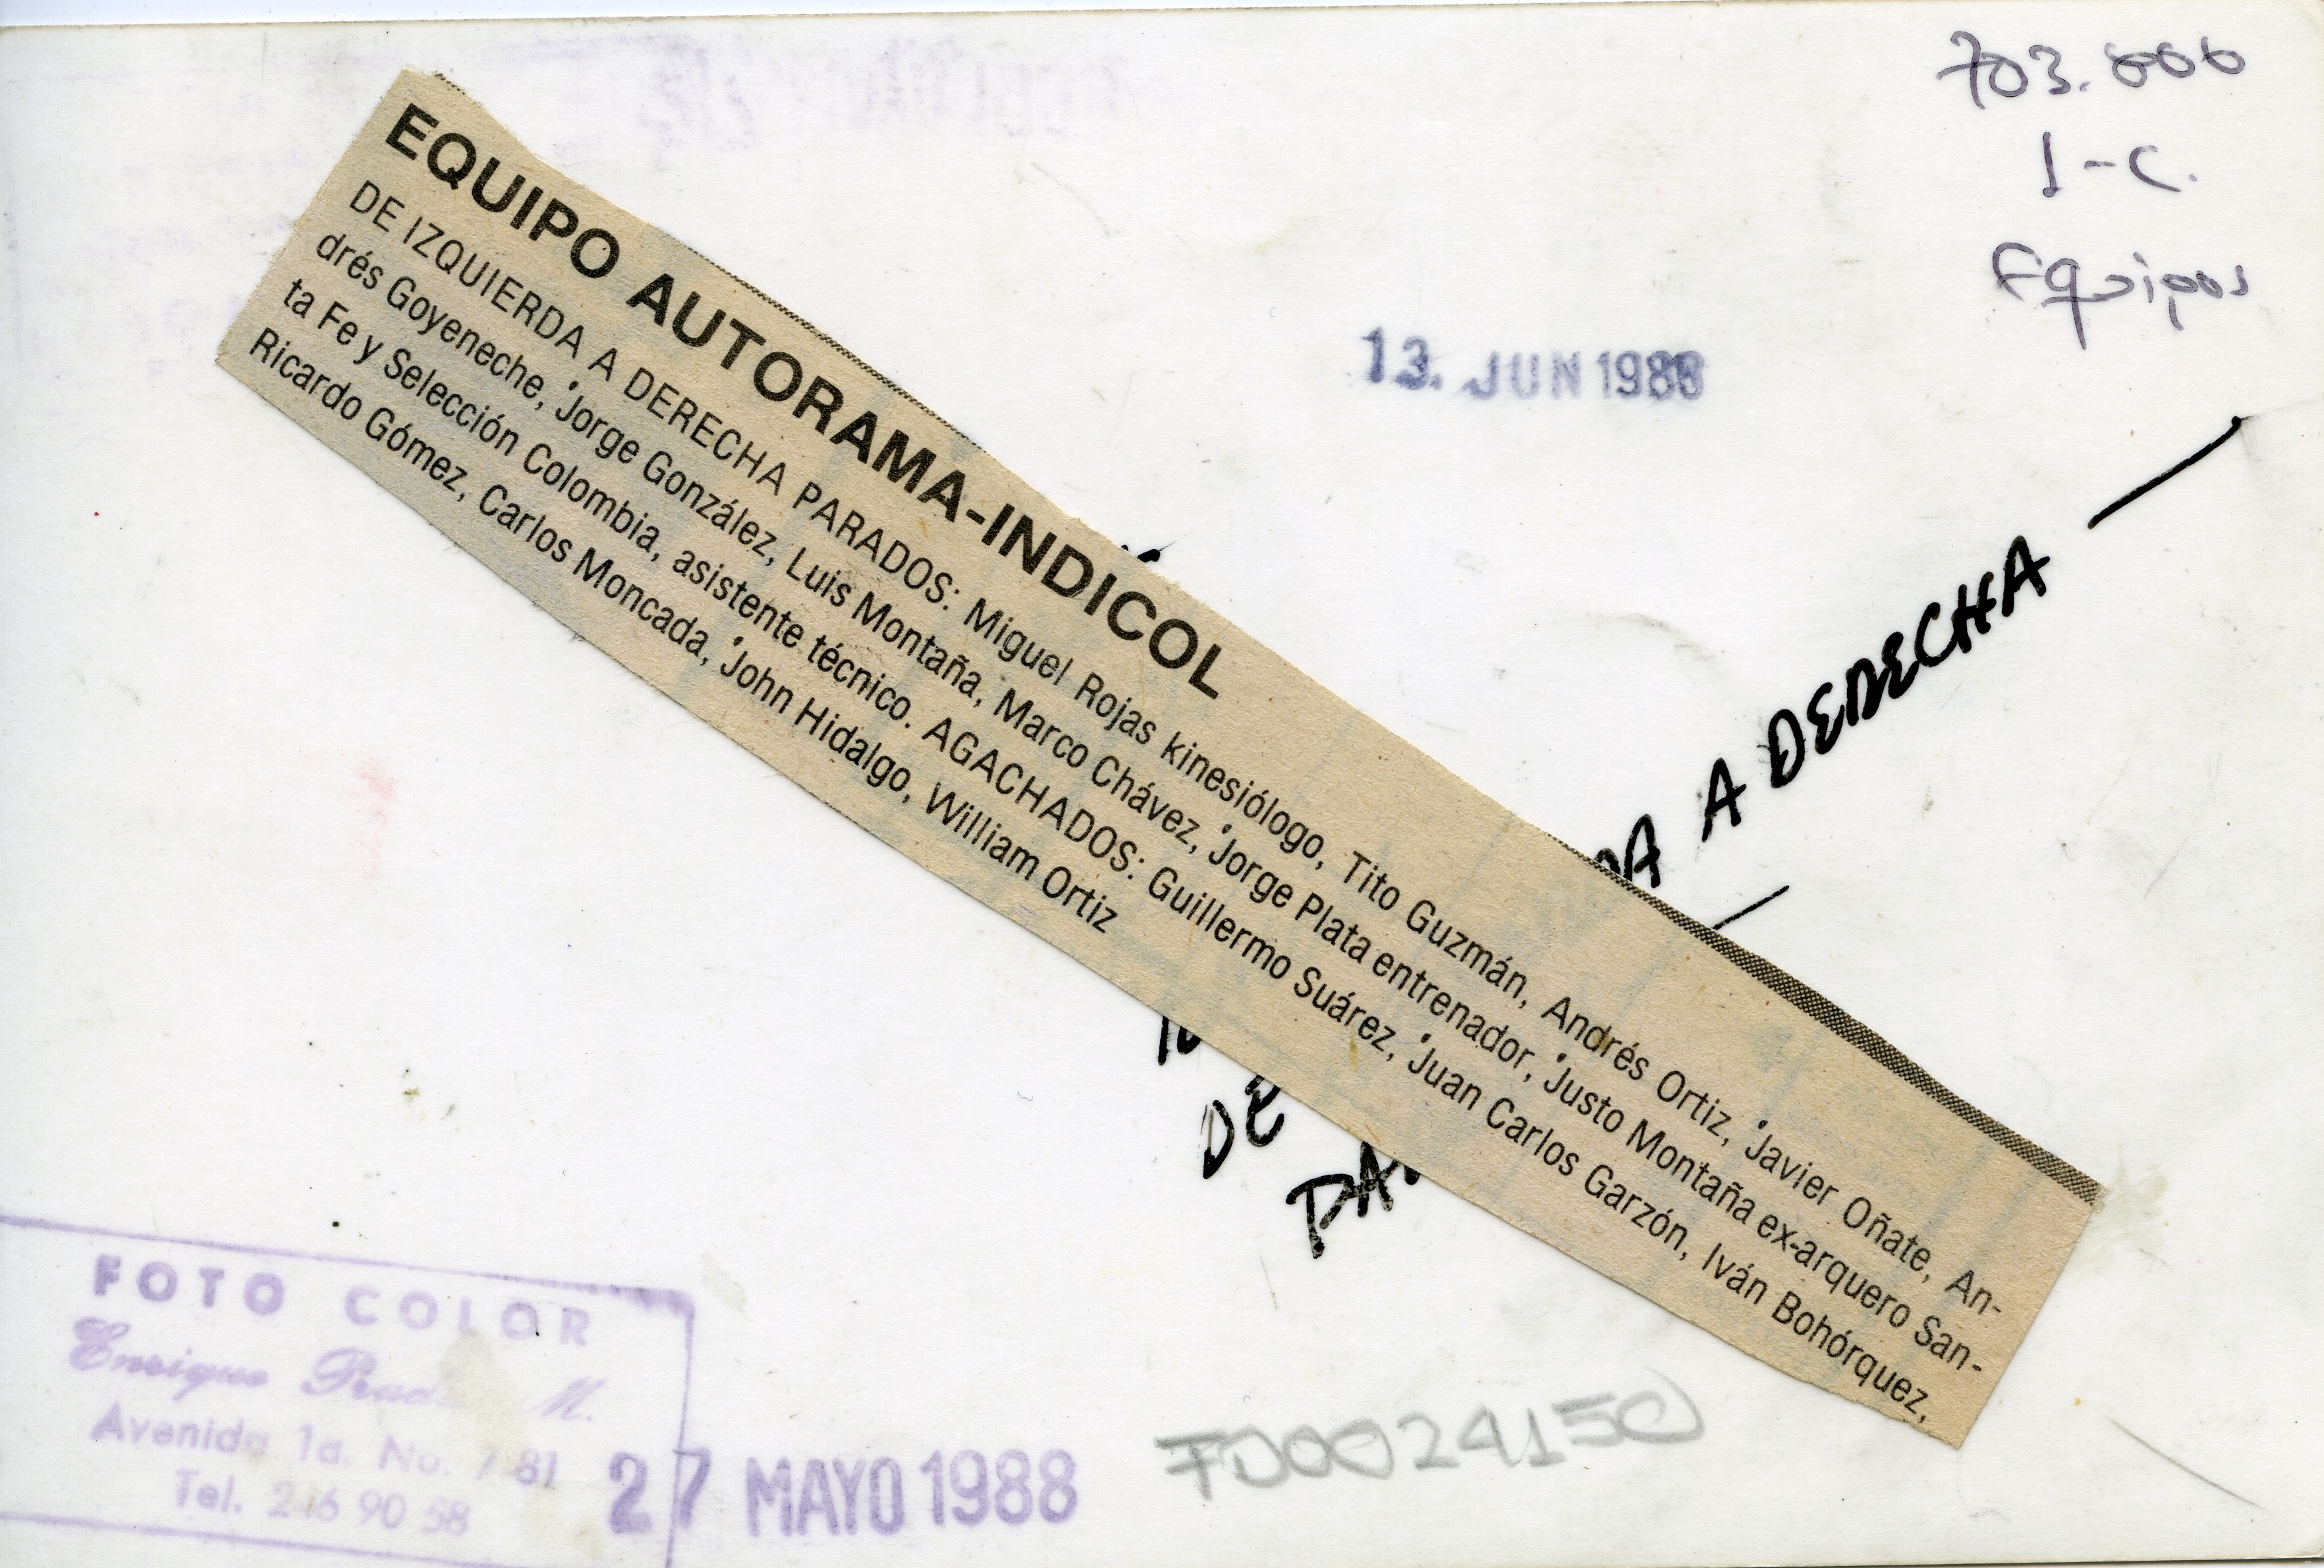 703.000
1-C.
Equipos
13. JUN 1988
EQUIPO AUTORAMA-INDICOL
DE IZQUIERDA A DERECHA PARADOS: Miguel Rojas kinesiólogo, Tito Guzmán, Andrés Ortiz, Javier Oñate, An-
drés Goyeneche, Jorge González, Luis Montaña, Marco Chávez, Jorge Plata entrenador, Justo Montaña ex-arquero San-
ta Fe y Selección Colombia, asistente técnico. AGACHADOS: Guillermo Suárez, Juan Carlos Garzón, Iván Bohórquez,
Ricardo Gómez, Carlos Moncada, John Hidalgo, William Ortiz
DE DA A DERECHA —
FOTO COLOR
Enrique M.
Avenida 1a. No. 7 81
Tel. 246 90 58
27 MAYO 1988
FD0024150